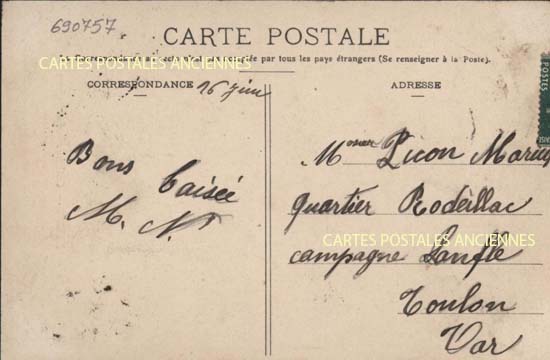 690757
CARTE POSTALE
par tous les pays étrangers (Se renseigner à la Poste).
CARTES POSTALES ANCIENNES
CORRESPONDANCE
16 Juin
ADRESSE
Bons
baisée
M. N.
Mosieur Picon Marius
quartier Rodeillac
CARTES POSTALES ANCIENNES
campagne
Toulon
Var